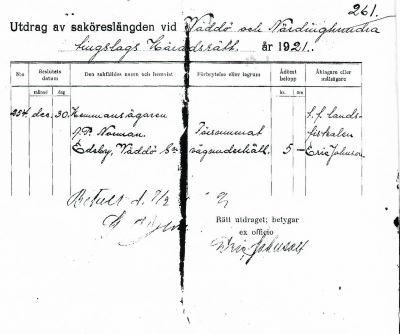 261.
Utdrag av saköreslängden vid Väddö och Närdinghundra
tingslags Häradsrätt. år 1921.
N:o Beslutets datum Den sakfälldes namn och hemvist Förbrytelse eller ingrum Ådömt belopp Åklagare eller målsägare
månad dag kr. öre
254. dec. 30 Hemmansägaren t. f. lands-
J. P. Norman. Försummat fiskalen
Edsby, Väddö Sn vägunderhåll. 5 – Eric Johnson.
Betalt d. 7/2
Rätt utdraget; betygar
ex officio
Eric Johnson